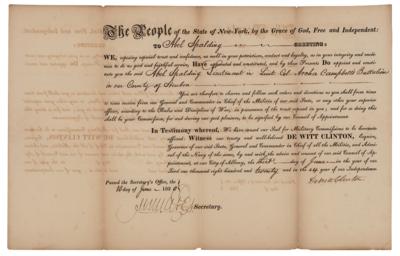 The People of the State of New-York, by the Grace of God, Free and Independent:
TO Abel Spalding GREETING:
WE, reposing especial trust and confidence, as well in your patriotism, conduct and loyalty, as in your integrity and readiness
to do us good and faithful service, Have appointed and constituted, and by these Presents Do appoint and
constitute you the said Abel Spalding Lieutenant in Lieut Col. Campbells Battalion
in our County of
You are therefore to observe and follow such orders and directions as you shall from time
to time receive from our General and Commander in Chief of the Militia of our said State, or any other your superior
officer, according to the Rules and Discipline of War, in pursuance of the trust reposed in you; and for so doing this
shall be your Commission, for and during our good pleasure, to be signified by our Council of Appointment.
In Testimony whereof, We have caused our Seal for Military Commissions to be hereunto
affixed. Witness our trusty and well-beloved DE WITT CLINTON, Esquire,
Governor of our said State, General and Commander in Chief of all the Militia, and Admiral
of the Navy of the same, by and with the advice and consent of our said Council of Appointment,
at our City of Albany, the day of June in the year of our
Lord one thousand eight hundred and twenty and in the 44 year of our Independence.
Passed the Secretary's Office, the
16 day of June 1820
DeWitt Clinton
Secretary.